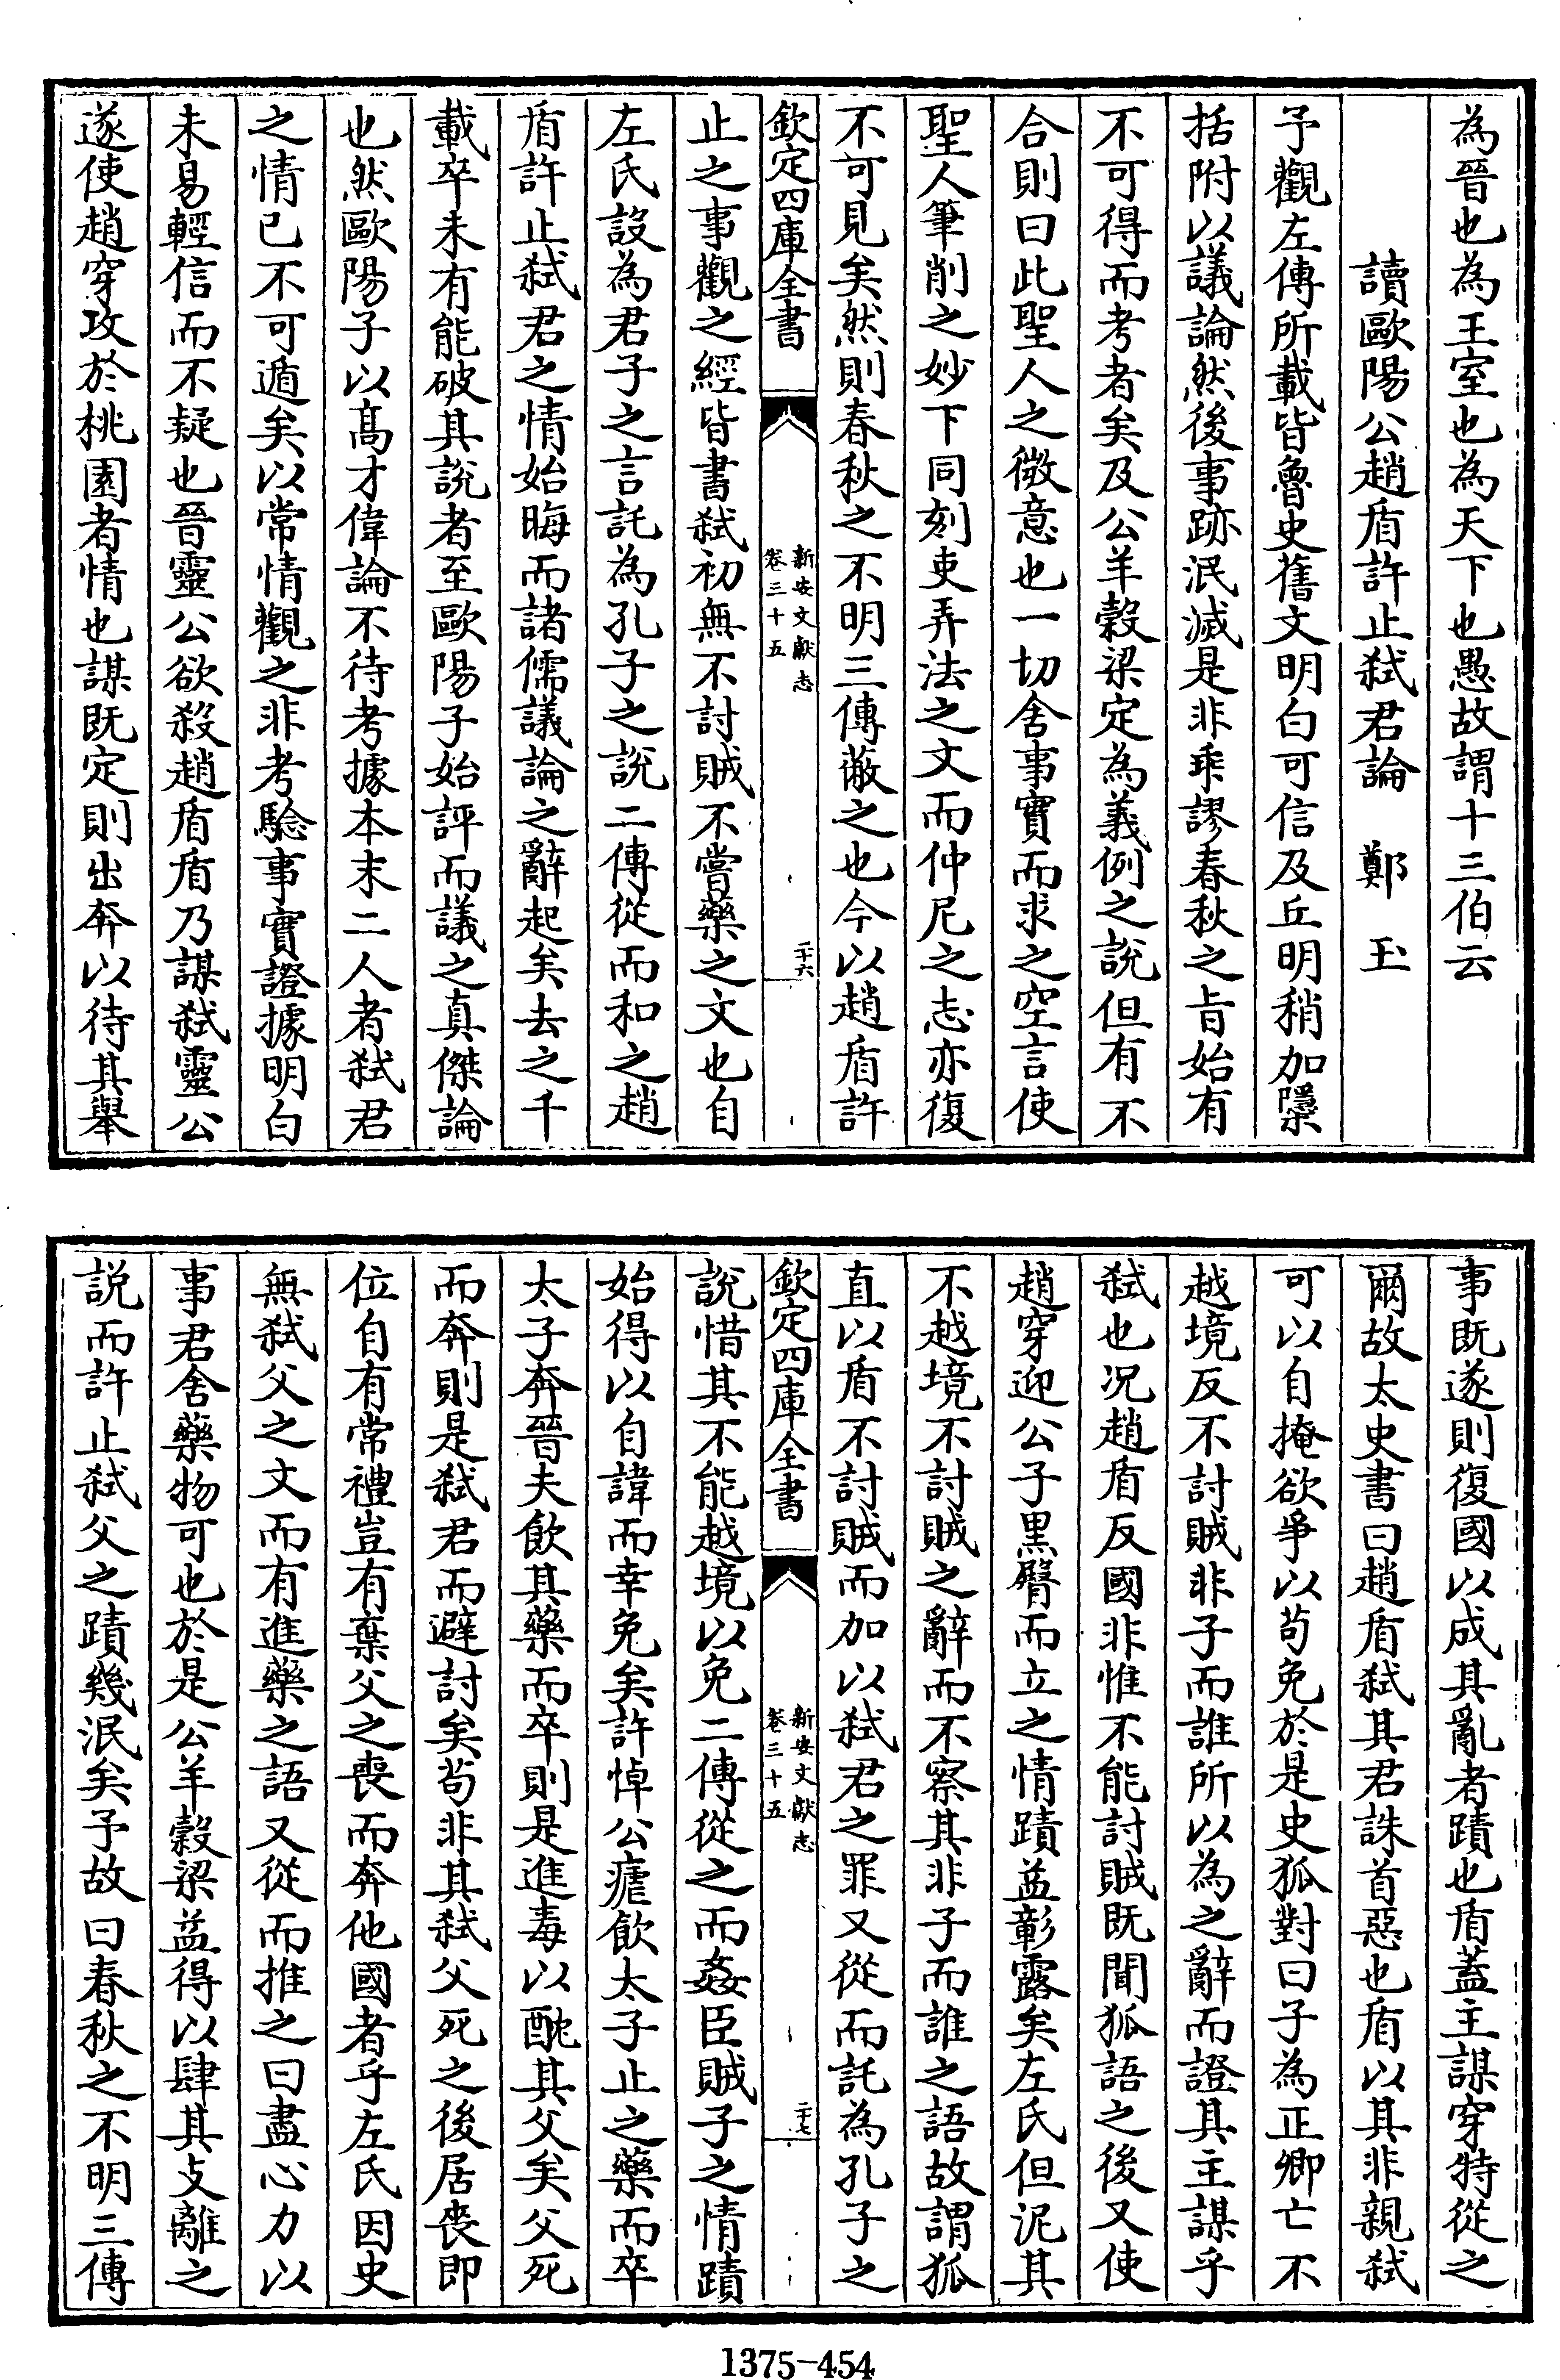 為晉也為王室也為天下也愚故謂十三伯云
讀歐陽公趙盾許止弑君論　鄭　玉
予觀左傳所載皆魯史舊文明白可信及丘明稍加檃
括附以議論然後事跡泯滅是非乖謬春秋之旨始有
不可得而考者矣及公羊穀梁定為義例之說但有不
合則曰此聖人之微意也一切舍事實而求之空言使
聖人筆削之妙下同刻吏弄法之文而仲尼之志亦復
不可見矣然則春秋之不明三傳蔽之也今以趙盾許
欽定四庫全書
新安文獻志
卷三十五
二十六
止之事觀之經皆書弑初無不討賊不嘗藥之文也自
左氏設為君子之言託為孔子之說二傳從而和之趙
盾許止弑君之情始晦而諸儒議論之辭起矣去之千
載卒未有能破其說者至歐陽子始評而議之真傑論
也然歐陽子以髙才偉論不待考據本末二人者弑君
之情已不可遁矣以常情觀之非考驗事實證據明白
未易輕信而不疑也晉靈公欲殺趙盾盾乃謀弑靈公
遂使趙穿攻於桃園者情也謀既定則出奔以待其舉
事既遂則復國以成其亂者蹟也盾蓋主謀穿特從之
爾故太史書曰趙盾弑其君誅首惡也盾以其非親弑
可以自掩欲爭以苟免於是史狐對曰子為正卿亡不
越境反不討賊非子而誰所以為之辭而證其主謀乎
弑也况趙盾反國非惟不能討賊既聞狐語之後又使
趙穿迎公子黑臀而立之情蹟益彰露矣左氏但泥其
不越境不討賊之辭而不察其非子而誰之語故謂狐
直以盾不討賊而加以弑君之罪又從而託為孔子之
欽定四庫全書
新安文獻志
卷三十五
二十七
說惜其不能越境以免二傳從之而姦臣賊子之情蹟
始得以自諱而幸免矣許悼公瘧飲太子止之藥而卒
太子奔晉夫飲其藥而卒則是進毒以酖其父矣父死
而奔則是弑君而避討矣苟非其弑父死之後居喪即
位自有常禮豈有棄父之喪而奔他國者乎左氏因史
無弑父之文而有進藥之語又從而推之曰盡心力以
事君舍藥物可也於是公羊穀梁益得以肆其支離之
説而許止弑父之蹟幾泯矣予故曰春秋之不明三傳
1375-454